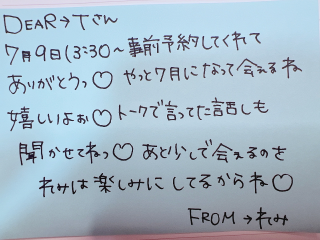 DEAR→Tさん
7月9日13:30〜事前予約してくれて
ありがとうっ♡ やっと7月になって会えるね
嬉しいよぉ♡ トークで言ってた話しも
聞かせてねっ♡ あと少しで会えるのを
れみは楽しみにしてるからね♡
FROM→れみ